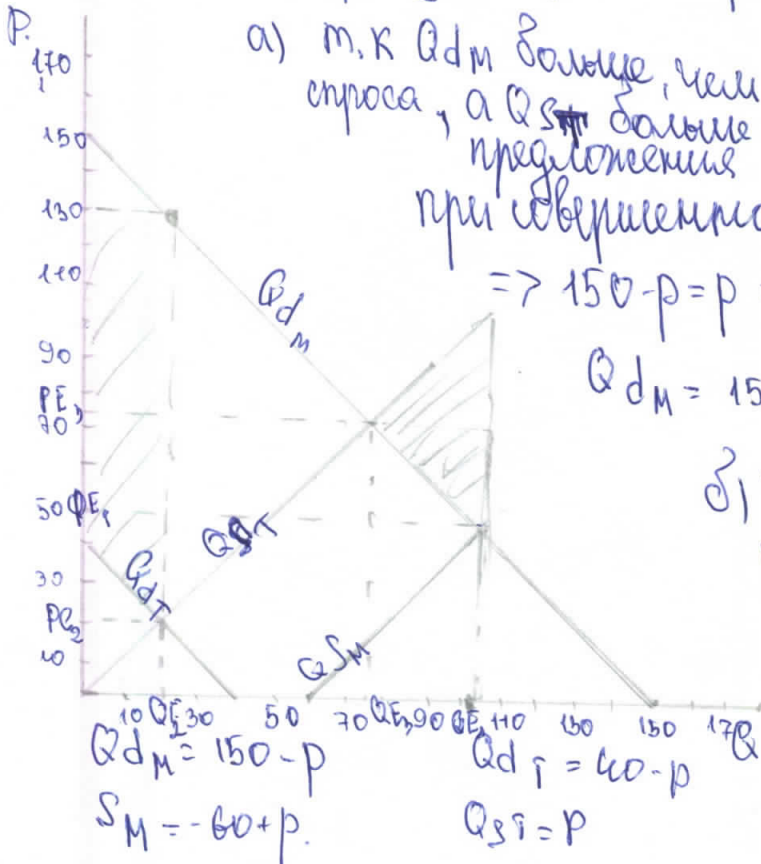 P.
а) т.к Qdм больше, чем
спроса, а QSт больше
предложения
при совершенно
=> 150-p=p
Qdм = 15
б)
170
150
130
110
90
PE3
70
50 PE1
30
PE2
10
Qdм
QSт
Qdт
QSм
10 QE2 30 50 70 QE3 90 QE1 110 130 150 17 Q
Qdм = 150-p
Qdт = 40-p
Sм = -60+p.
QSт = p